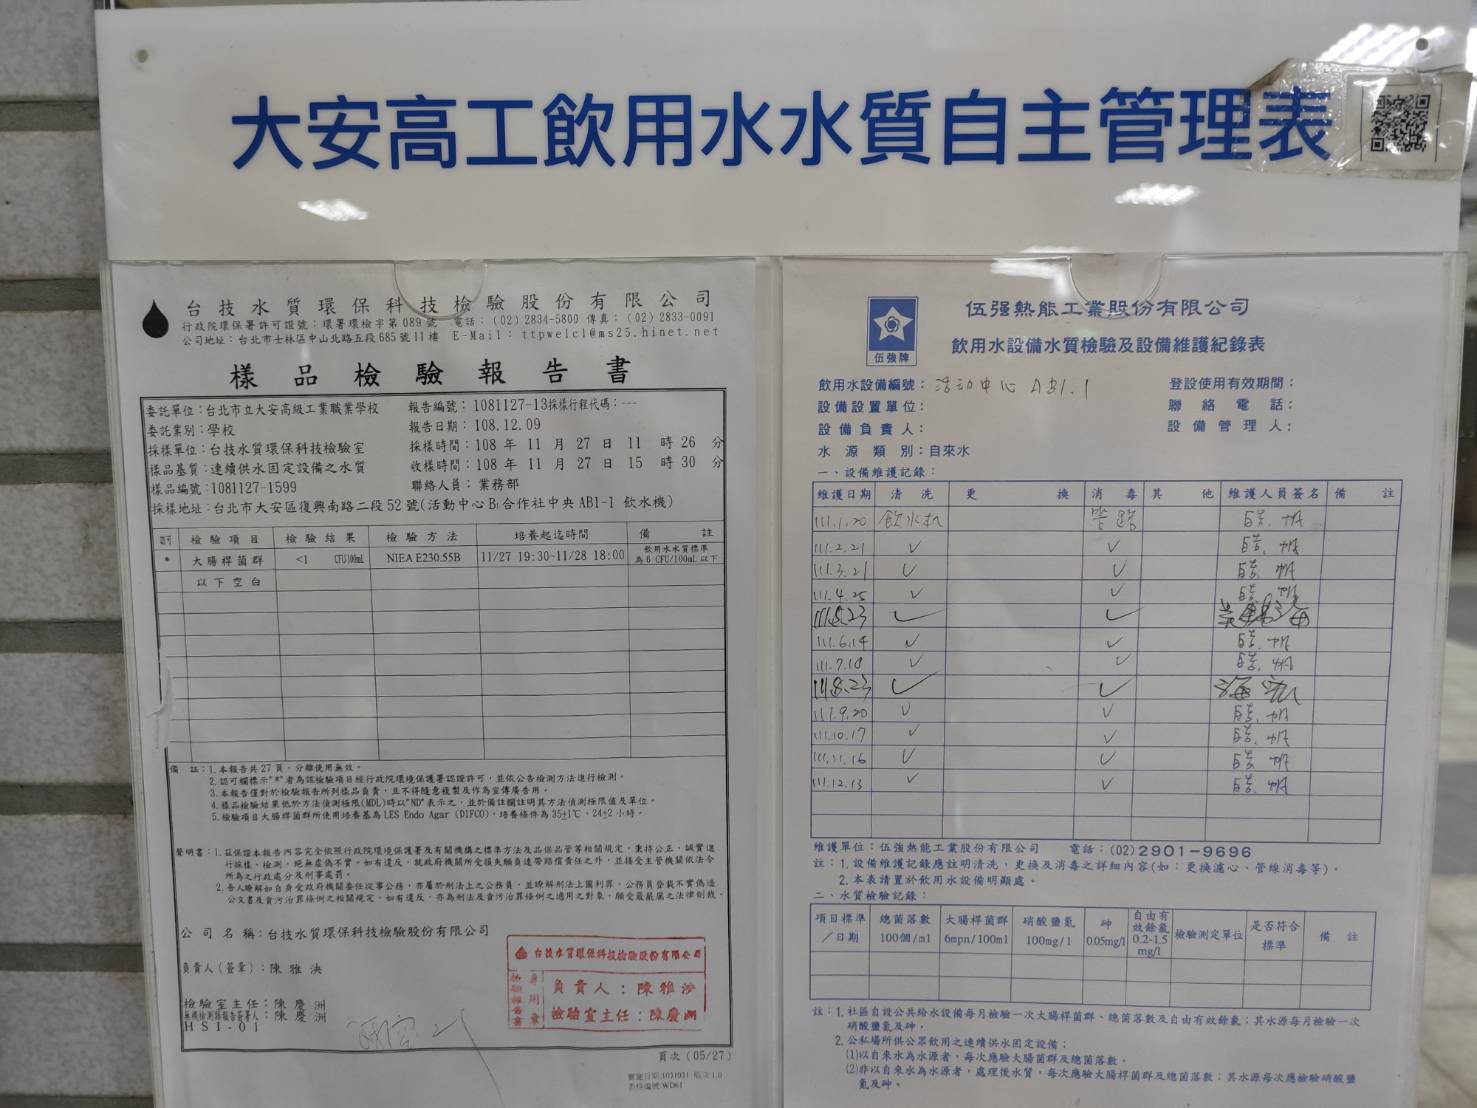 大安高工飲用水水質自主管理表
台技水質環保科技檢驗股份有限公司
行政院環保署許可證號：環署環檢字第089號 電話：(02)2834-5800 傳真：(02)2833-0091
公司地址：台北市士林區中山北路五段685號11樓 E-Mail：ttpwelcl@ms25.hinet.net
樣品檢驗報告書
委託單位：台北市立大安高級工業職業學校 報告編號：1081127-13採樣行程代碼：---
委託業別：學校 報告日期：108.12.09
採樣單位：台技水質環保科技檢驗室 採樣時間：108 年 11 月 27 日 11 時 26 分
樣品基質：連續供水固定設備之水質 收樣時間：108 年 11 月 27 日 15 時 30 分
樣品編號：1081127-1599 聯絡人員：業務部
採樣地址：台北市大安區復興南路二段52號(活動中心B1合作社中央AB1-1飲水機)
認可 檢驗項目 檢驗結果 檢驗方法 培養起迄時間 備註
* 大腸桿菌群 <1 CFU/100mL NIEA E230.55B 11/27 19:30~11/28 18:00 飲用水水質標準
為6 CFU/100mL以下
以下空白
備 註：1.本報告共27頁，分離使用無效。
2.認可欄標示"*"者為該檢驗項目經行政院環境保護署認證許可，並依公告檢測方法進行檢測。
3.本報告僅對於檢驗報告所列樣品負責，且不得隨意複製及作為宣傳廣告用。
4.樣品檢驗結果低於方法偵測極限(MDL)時以"ND"表示之，並於備註欄註明其方法偵測極限值及單位。
5.檢驗項目大腸桿菌群所使用培養基為LES Endo Agar (DIFCO)，培養條件為35±1℃，24±2小時。
聲明書：1.茲保證本報告內容完全依照行政院環境保護署及有關機構之標準方法及品保品管等相關規定，秉持公正、誠實進
行採樣、檢測。絕無虛偽不實，如有違反，就政府機關所受損失願負連帶賠償責任之外，並接受主管機關依法令
所為之行政處分及刑事處罰。
2.吾人瞭解如自身受政府機關委任從事公務，亦屬於刑法上之公務員，並瞭解刑法上圖利罪、公務員登載不實偽造
公文書及貪污治罪條例之相關規定，如有違反，亦為刑法及貪污治罪條例之適用之對象，願受最嚴厲之法律制裁。
公司名稱：台技水質環保科技檢驗股份有限公司
負責人(簽章)：陳雅泱
檢驗室主任：陳慶洲
無機檢測類報告簽署人：陳慶洲
HSI-01
台技水質環保科技檢驗股份有限公司
負責人：陳雅泱
檢驗室主任：陳慶洲
頁次(05/27)
伍强牌
伍强熱能工業股份有限公司
飲用水設備水質檢驗及設備維護紀錄表
飲用水設備編號：活动中心 AB1.1 登設使用有效期間：
設備設置單位： 聯絡電話：
設備負責人： 設備管理人：
水源類別：自來水
一、設備維護記錄：
維護日期 清洗 更換 消毒 其他 維護人員簽名 備註
111.1.20 飲水机 管路
111.2.21 ✓ ✓
111.3.21 ✓ ✓
111.4.25 ✓ ✓
111.5.23 ✓ ✓
111.6.14 ✓ ✓
111.7.18 ✓ ✓
111.8.23 ✓ ✓
111.9.20 ✓ ✓
111.10.17 ✓ ✓
111.11.16 ✓ ✓
111.12.13 ✓ ✓
維護單位：伍强熱能工業股份有限公司 電話：(02)2901-9696
註：1.設備維護記錄應註明清洗、更換及消毒之詳細內容(如：更換濾心、管線消毒等)。
2.本表請置於飲用水設備明顯處。
二、水質檢驗記錄：
項目標準／日期 總菌落數 100個/ml 大腸桿菌群 6mpn/100ml 硝酸鹽氮 100mg/l 砷 0.05mg/l 自由有效餘氯 0.2-1.5 mg/l 檢驗測定單位 是否符合標準 備註
註：1.社區自設公共給水設備每月檢驗一次大腸桿菌群、總菌落數及自由有效餘氯；其水源每月檢驗一次
硝酸鹽氮及砷。
2.公私場所供公眾飲用之連續供水固定設備：
(1)以自來水為水源者，每次應驗大腸菌群及總菌落數。
(2)非以自來水為水源者，處理後水質，每次應驗大腸桿菌群及總菌落數；其水源每次應檢驗硝酸鹽
氮及砷。